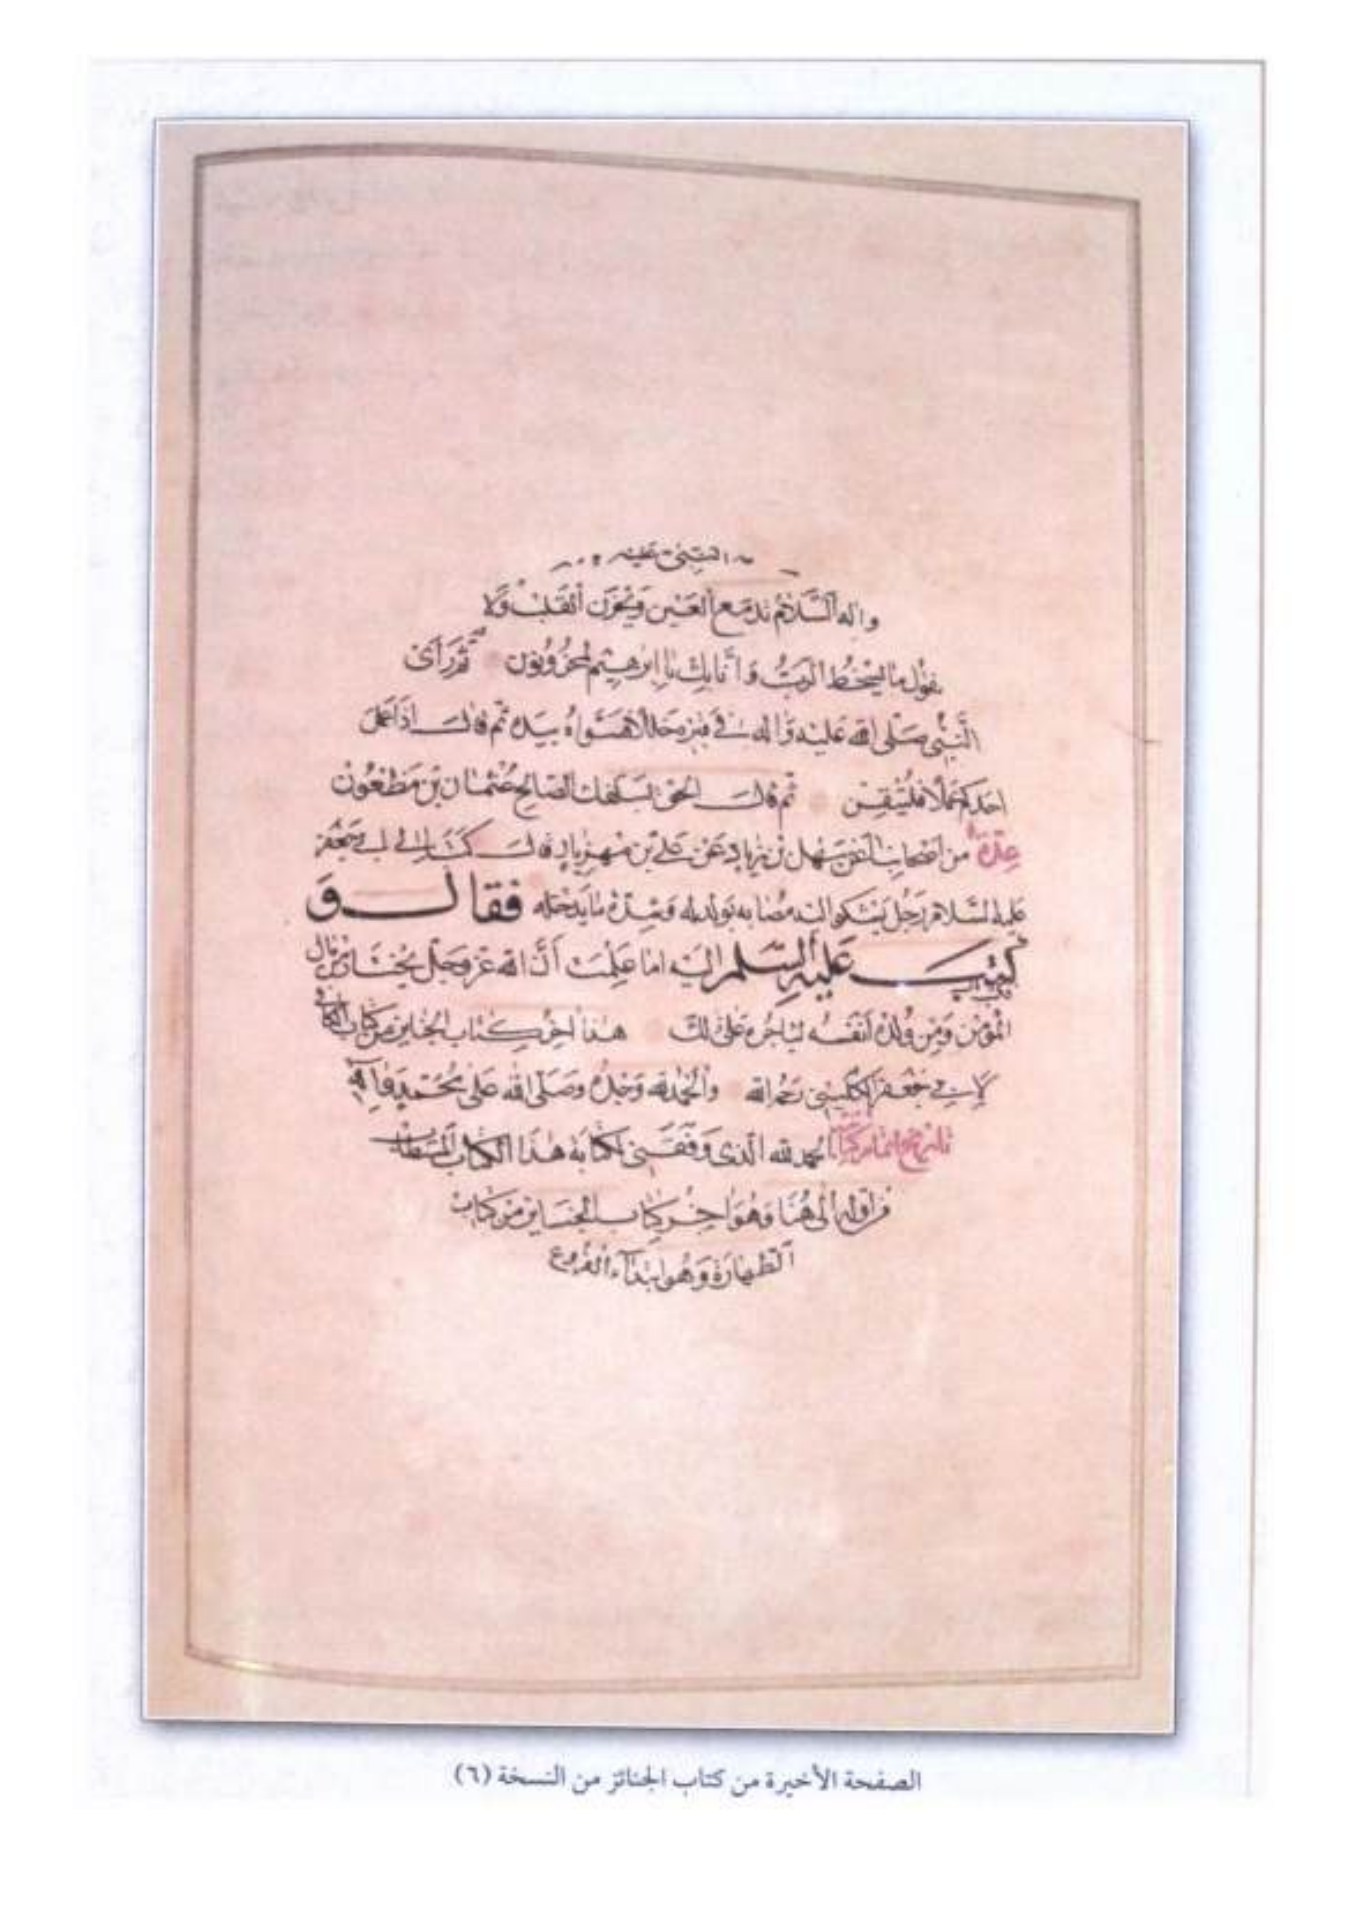 النبي عليه
واله السلام تدمع العين ويحزن القلب ولا
يقول ما يسخط الرب وانا بك يا ابرهيم لمحزونون ثم رأى
النبي صلى الله عليه واله في قبره خللا فسواه بيده ثم قال اذا عمل
احدكم عملا فليتقن ثم قال الحق بسلفك الصالح عثمان بن مظعون
عدة من اصحابنا عن سهل بن زياد عن علي بن مهزيار قال كتب الى ابي جعفر
عليه السلام رجل يشكو اليه مصابه بولده وشدة ما يدخله فقال و
كتب عليه السلم اليه اما علمت أن الله عز وجل يختار من مال
المؤمن ومن ولده انفسه لياجره على ذلك هذا اخر كتاب الجنايز من كتاب الكافي
لابي جعفر الكليني رحمه الله والحمد لله وحده وصلى الله على محمد وآله
الحمد لله الذي وفقني لكتابة هذا الكتاب المستطاب
من اوله الى هنا وهو اخر كتاب الجنايز من كتاب
الطهارة وهو ابتداء الفروع
الصفحة الأخيرة من كتاب الجنائز من النسخة (٦)